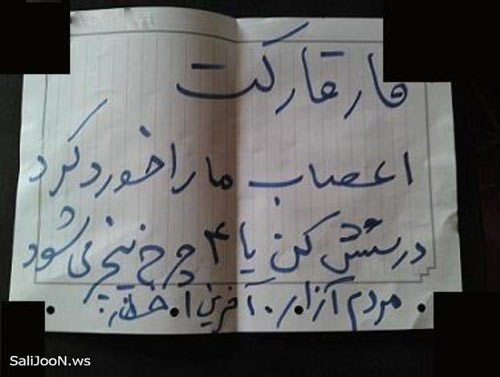 قارقارکت
اعصاب ما را خورد کرد
درستش کن یا ۴ چرخ پنچر می شود
مردم آزار. آخرین اخطار.
SaliJooN.ws